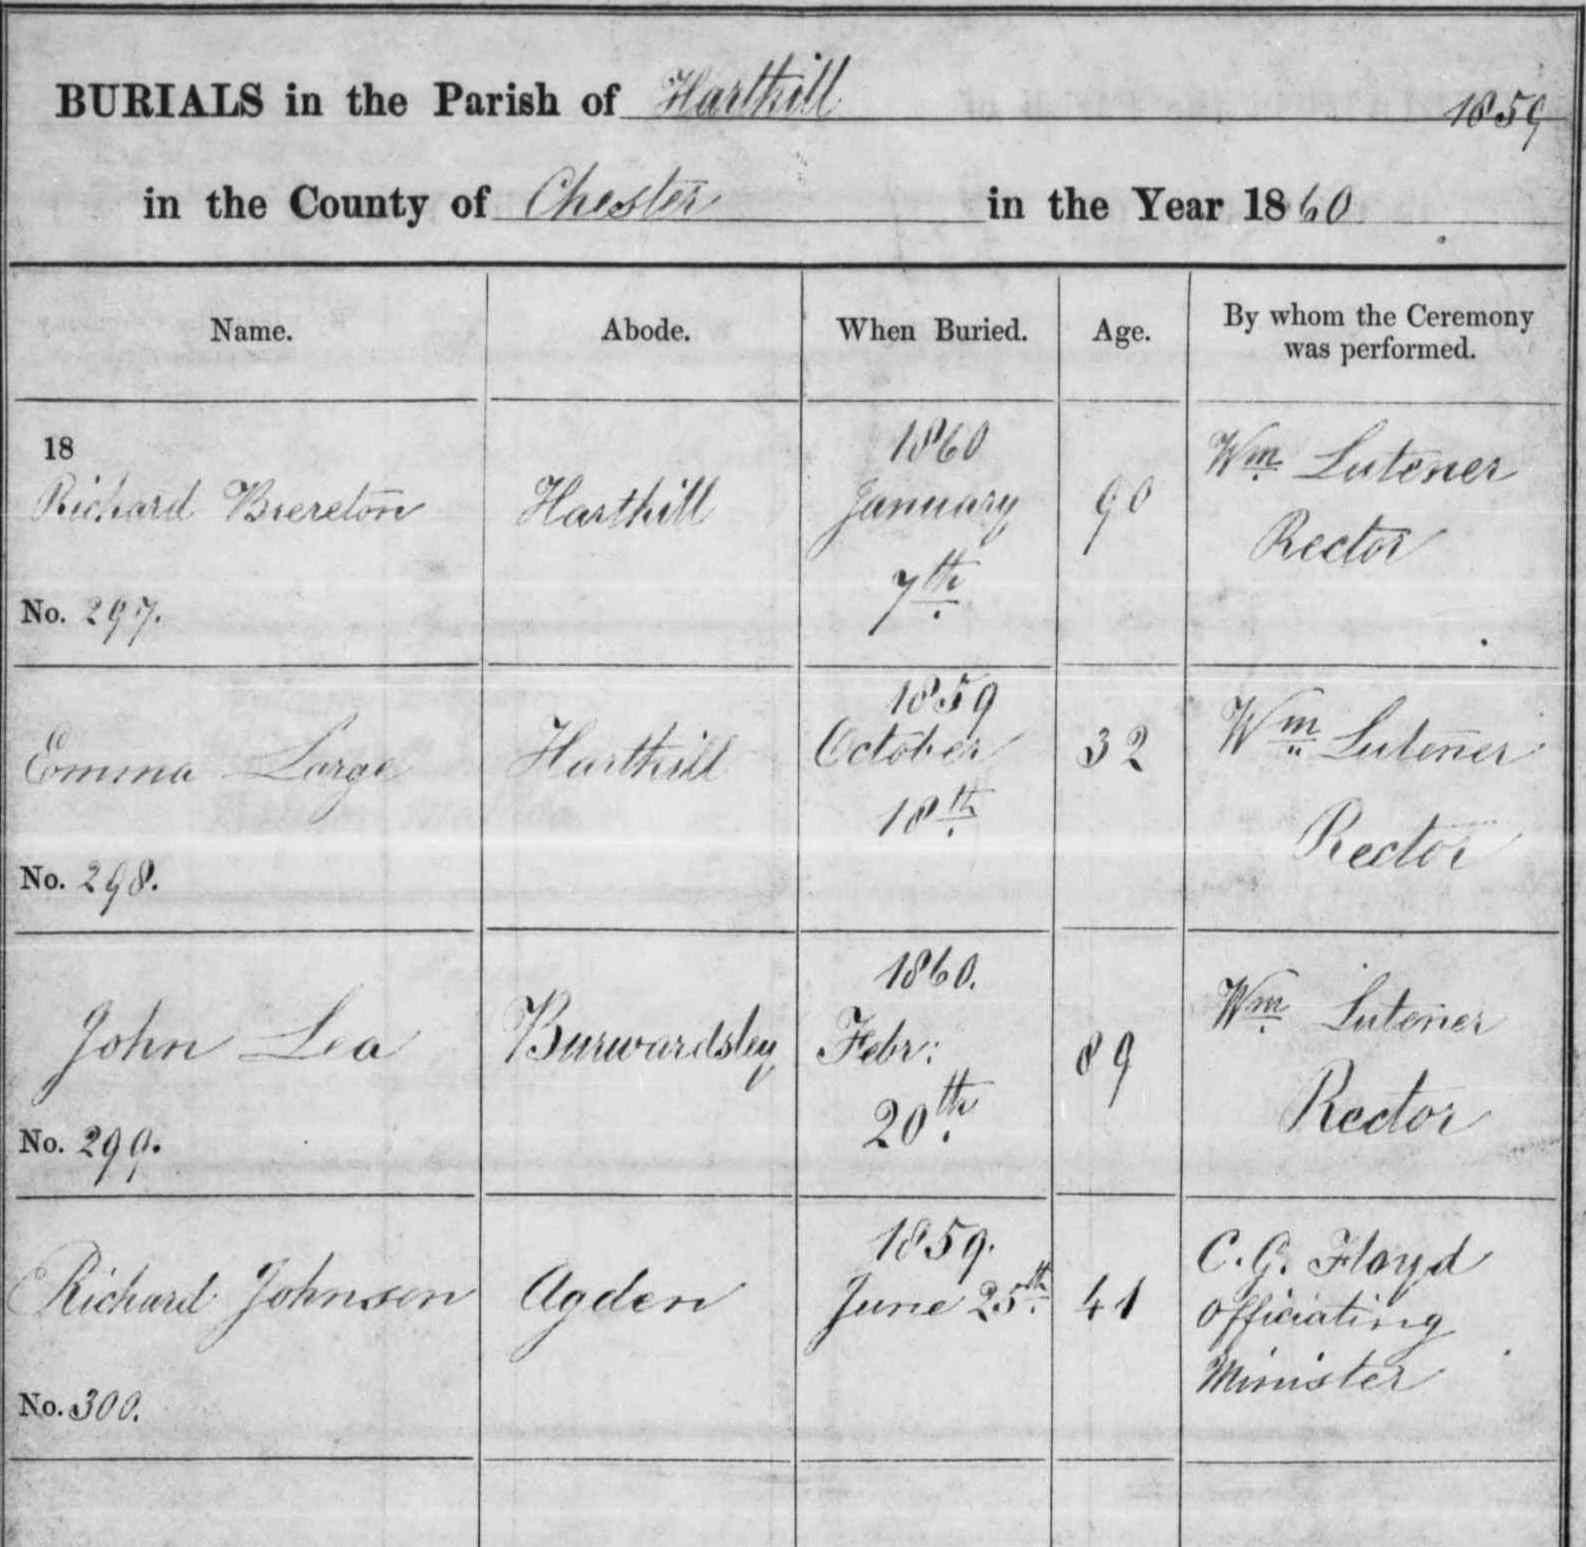 BURIALS in the Parish of Harthill 1859
in the County of Chester in the Year 1860
Name. Abode. When Buried. Age. By whom the Ceremony was performed.
18
Richard Brereton
No. 297.
Harthill
1860
January
7th
90
Wm Lutener
Rector
Emma Large
No. 298.
Harthill
1859
October
18th
32
Wm Lutener
Rector
John Lea
No. 299.
Burwardsley
1860.
Febr:
20th
89
Wm Lutener
Rector
Richard Johnson
No. 300.
Agden
1859.
June 25th
41
C. G. Floyd
Officiating
Minister